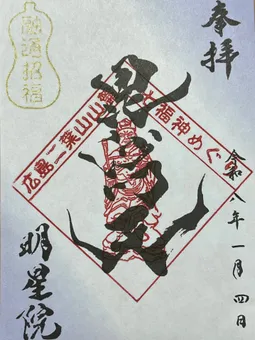 奉拝
融通招福
広島二葉山山麓
七福神めぐり
令和八年一月四日
明星院